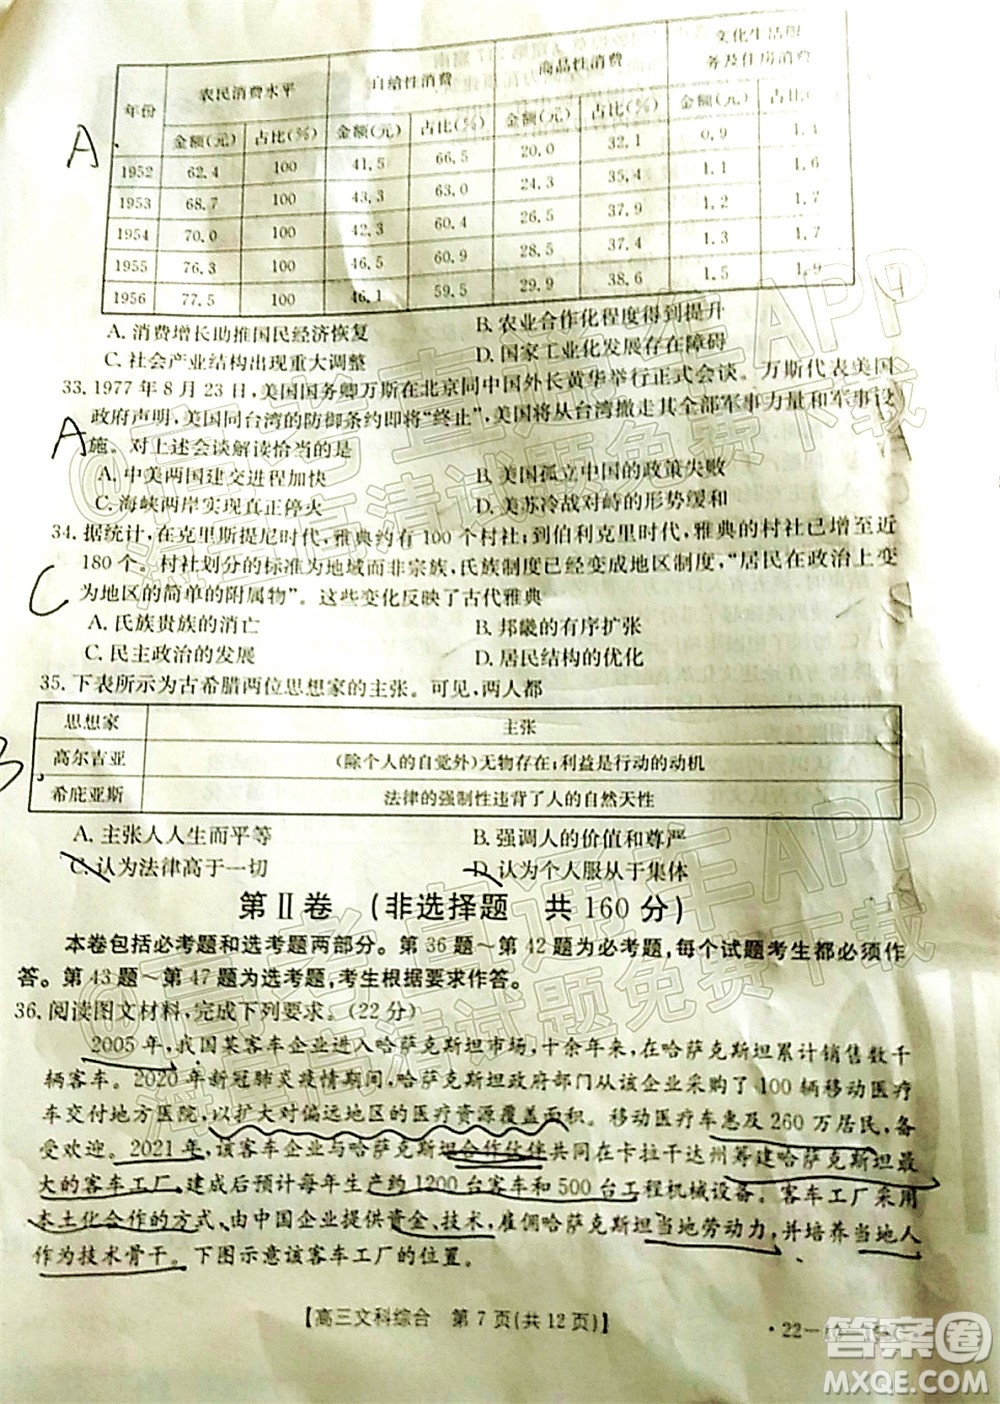 年份 农民消费水平 自给性消费 商品性消费 文化生活服务及住房消费
金额(元) 占比(%) 金额(元) 占比(%) 金额(元) 占比(%) 金额(元) 占比(%)
1952 62.4 100 41.5 66.5 20.0 32.1 0.9 1.4
1953 68.7 100 43.2 63.0 24.3 35.4 1.1 1.6
1954 70.0 100 42.3 60.4 26.5 37.9 1.2 1.7
1955 76.3 100 46.5 60.9 28.6 37.4 1.3 1.7
1956 77.5 100 46.1 59.5 29.9 38.6 1.5 1.9
A
A. 消费增长助推国民经济恢复 B. 农业合作化程度得到提升
C. 社会产业结构出现重大调整 D. 国家工业化发展存在障碍
33. 1977 年 8 月 23 日,美国国务卿万斯在北京同中国外长黄华举行正式会谈。万斯代表美国
政府声明,美国同台湾的防御条约即将“终止”,美国将从台湾撤走其全部军事力量和军事设
A 施。对上述会谈解读恰当的是
A. 中美两国建交进程加快 B. 美国孤立中国的政策失败
C. 海峡两岸实现真正停火 D. 美苏冷战对峙的形势缓和
34. 据统计,在克里斯提尼时代,雅典约有 100 个村社;到伯利克里时代,雅典的村社已增至近
180 个。村社划分的标准为地域而非宗族,氏族制度已经变成地区制度,“居民在政治上变
C 为地区的简单的附属物”。这些变化反映了古代雅典
A. 氏族贵族的消亡 B. 邦畿的有序扩张
C. 民主政治的发展 D. 居民结构的优化
35. 下表所示为古希腊两位思想家的主张。可见,两人都
思想家 主张
高尔吉亚 (除个人的自觉外)无物存在;利益是行动的动机
希庇亚斯 法律的强制性违背了人的自然天性
A. 主张人人生而平等 B. 强调人的价值和尊严
C. 认为法律高于一切 D. 认为个人服从于集体
第Ⅱ卷 (非选择题 共 160 分)
本卷包括必考题和选考题两部分。第 36 题~第 42 题为必考题,每个试题考生都必须作
答。第 43 题~第 47 题为选考题,考生根据要求作答。
36. 阅读图文材料,完成下列要求。(22 分)
2005 年,我国某客车企业进入哈萨克斯坦市场,十余年来,在哈萨克斯坦累计销售数千
辆客车。2020 年新冠肺炎疫情期间,哈萨克斯坦政府部门从该企业购买了 100 辆移动医疗
车交付地方医院,以扩大对偏远地区的医疗资源覆盖面积。移动医疗车惠及 260 万居民,备
受欢迎。2021 年,该客车企业与哈萨克斯坦合作伙伴共同在卡拉干达州筹建哈萨克斯坦最
大的客车工厂,建成后预计每年生产约 1200 台客车和 500 台工程机械设备。客车工厂采用
本土化合作的方式,由中国企业提供资金、技术,雇佣哈萨克斯坦当地劳动力,并培养当地人
作为技术骨干。下图示意该客车工厂的位置。
【高三文科综合 第 7 页(共 12 页)】
答案圈
MXQE.COM